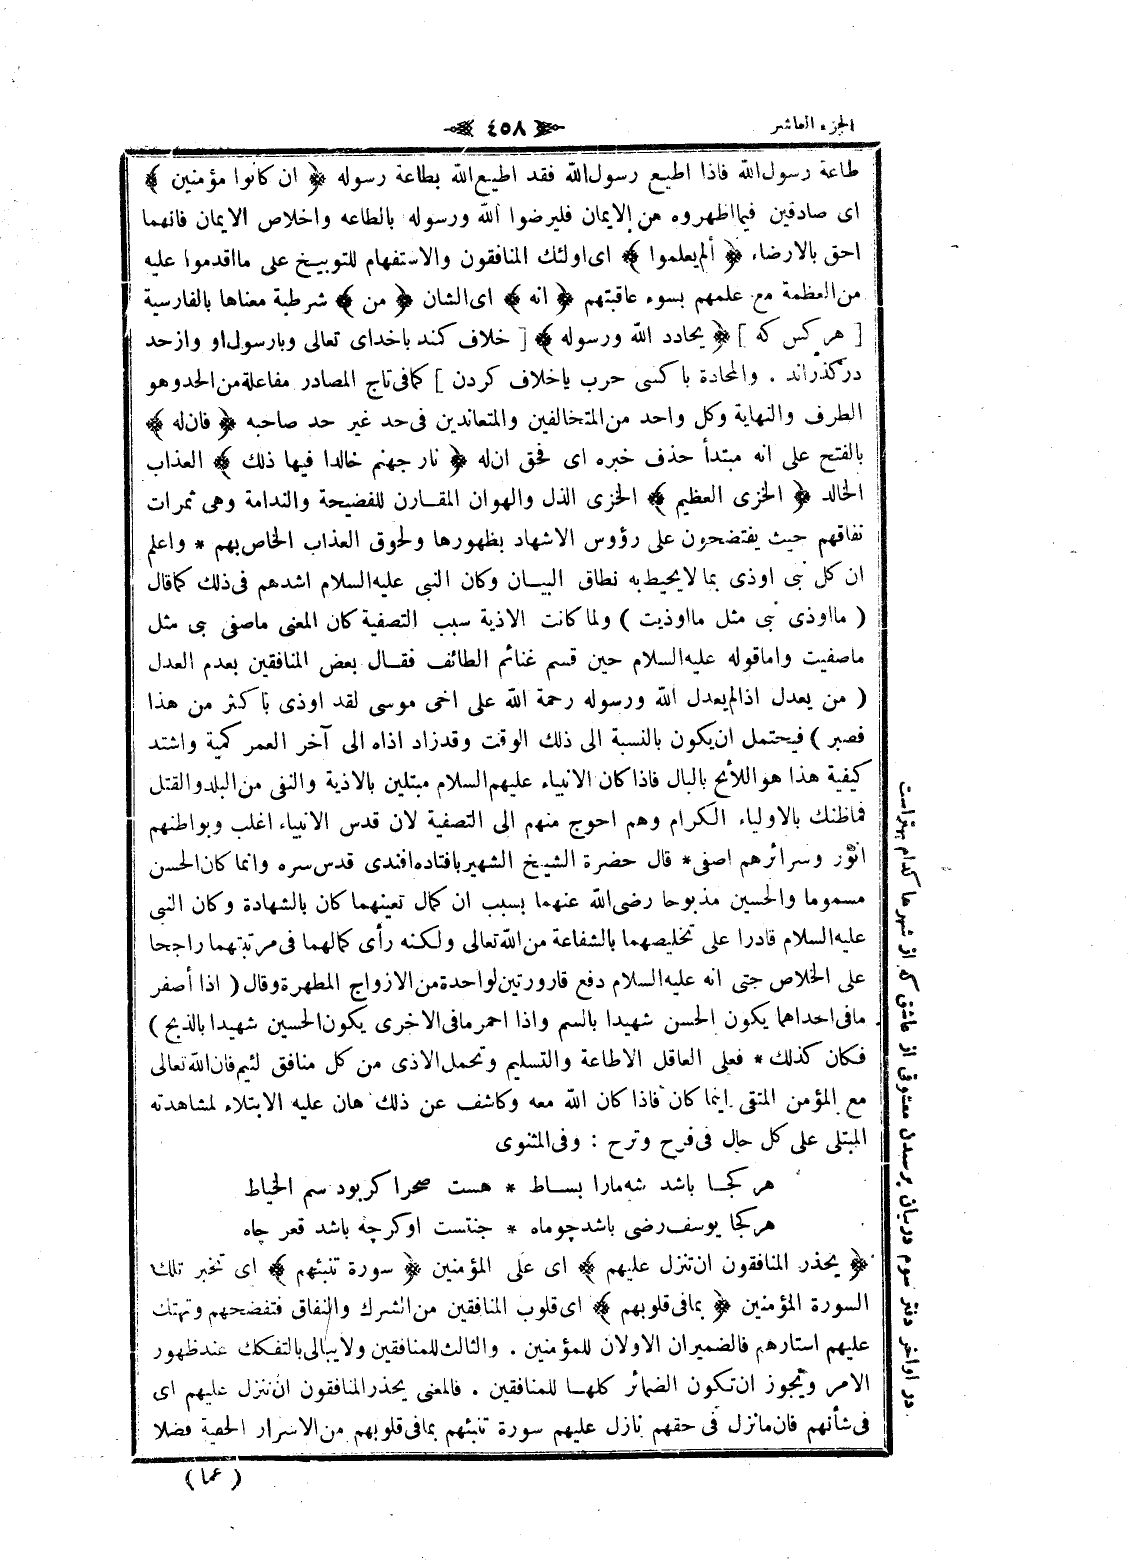 الجزء العاشر
﴿ ٤٥٨ ﴾
طاعة رسول الله فاذا اطيع رسول الله فقد اطيع الله بطاعة رسوله ﴿ ان كانوا مؤمنين ﴾
اى صادقين فيما اظهروه من الايمان فليرضوا الله ورسوله بالطاعه واخلاص الايمان فانهما
احق بالارضاء ﴿ ألم يعلموا ﴾ اى اولئك المنافقون والاستفهام للتوبيخ على ما اقدموا عليه
من العظمة مع علمهم بسوء عاقبتهم ﴿ انه ﴾ اى الشان ﴿ من ﴾ شرطية معناها بالفارسية
[ هر كس كه ] ﴿ يحادد الله ورسوله ﴾ [ خلاف كند باخداى تعالى وبارسول او وازحد
دركذراند . والمحادة باكسى حرب ياخلاف كردن ] كما فى تاج المصادر مفاعلة من الحد وهو
الطرف والنهاية وكل واحد من المتخالفين والمتعاندين فى حد غير حد صاحبه ﴿ فان له ﴾
بالفتح على انه مبتدأ حذف خبره اى فحق ان له ﴿ نار جهنم خالدا فيها ذلك ﴾ العذاب
الخالد ﴿ الخزى العظيم ﴾ الخزى الذل والهوان المقارن للفضيحة والندامة وهى ثمرات
نفاقهم حيث يفتضحون على رؤوس الاشهاد بظهورها ولحوق العذاب الخاص بهم * واعلم
ان كل نبى اوذى بما لا يحيط به نطاق البيان وكان النبى عليه السلام اشدهم فى ذلك كما قال
( ما اوذى نبى مثل ما اوذيت ) ولما كانت الاذية سبب التصفية كان المعنى ماصفى نبى مثل
ماصفيت واما قوله عليه السلام حين قسم غنائم الطائف فقال بعض المنافقين بعدم العدل
( من يعدل اذالم يعدل الله ورسوله رحمة الله على اخى موسى لقد اوذى باكثر من هذا
فصبر ) فيحتمل ان يكون بالنسبة الى ذلك الوقت وقد زاد اذاه الى آخر العمر كمية واشتد
كيفية هذا هو اللائح بالبال فاذا كان الانبياء عليهم السلام مبتلين بالاذية والنفى من البلد والقتل
فماظنك بالاولياء الكرام وهم احوج منهم الى التصفية لان قدس الانبياء اغلب وبواطنهم
انور وسرائرهم اصفى * قال حضرة الشيخ الشهير بافتاده افندى قدس سره وانما كان الحسن
مسموما والحسين مذبوحا رضى الله عنهما بسبب ان كمال تعينهما كان بالشهادة وكان النبى
عليه السلام قادرا على تخليصهما بالشفاعة من الله تعالى ولكنه رأى كمالهما فى مرتبتهما راجحا
على الخلاص حتى انه عليه السلام دفع قارورتين لواحدة من الازواج المطهرة وقال ( اذا أصفر
مافى احداهما يكون الحسن شهيدا بالسم واذا احمر مافى الاخرى يكون الحسين شهيدا بالذبح )
فكان كذلك * فعلى العاقل الاطاعة والتسليم وتحمل الاذى من كل منافق لئيم فان الله تعالى
مع المؤمن المتقى اينما كان فاذا كان الله معه وكاشف عن ذلك هان عليه الابتلاء لمشاهدته
المبتلى على كل حال فى فرح وترح : وفى المثنوى
هر كجا باشد شه مارا بساط * هست صحرا كر بود سم الخياط
هر كجا يوسف رخى باشد چو ماه * جنتست او كرچه باشد قعر چاه
﴿ يحذر المنافقون ان تنزل عليهم ﴾ اى على المؤمنين ﴿ سورة تنبئهم ﴾ اى تخبر تلك
السورة المؤمنين ﴿ بما فى قلوبهم ﴾ اى قلوب المنافقين من الشرك والنفاق فتفضحهم وتهتك
عليهم استارهم فالضميران الاولان للمؤمنين . والثالث للمنافقين ولا يبالى بالتفكك عند ظهور
الامر ويجوز ان تكون الضمائر كلها للمنافقين . فالمعنى يحذر المنافقون ان تنزل عليهم اى
فى شأنهم فان مانزل فى حقهم نازل عليهم سورة تنبئهم بما فى قلوبهم من الاسرار الخفية فضلا
( عما )
در اواخر دفتر سوم دربيان پرسيدن معشوقى از عاشق كه از شهرها كدام بهتراست